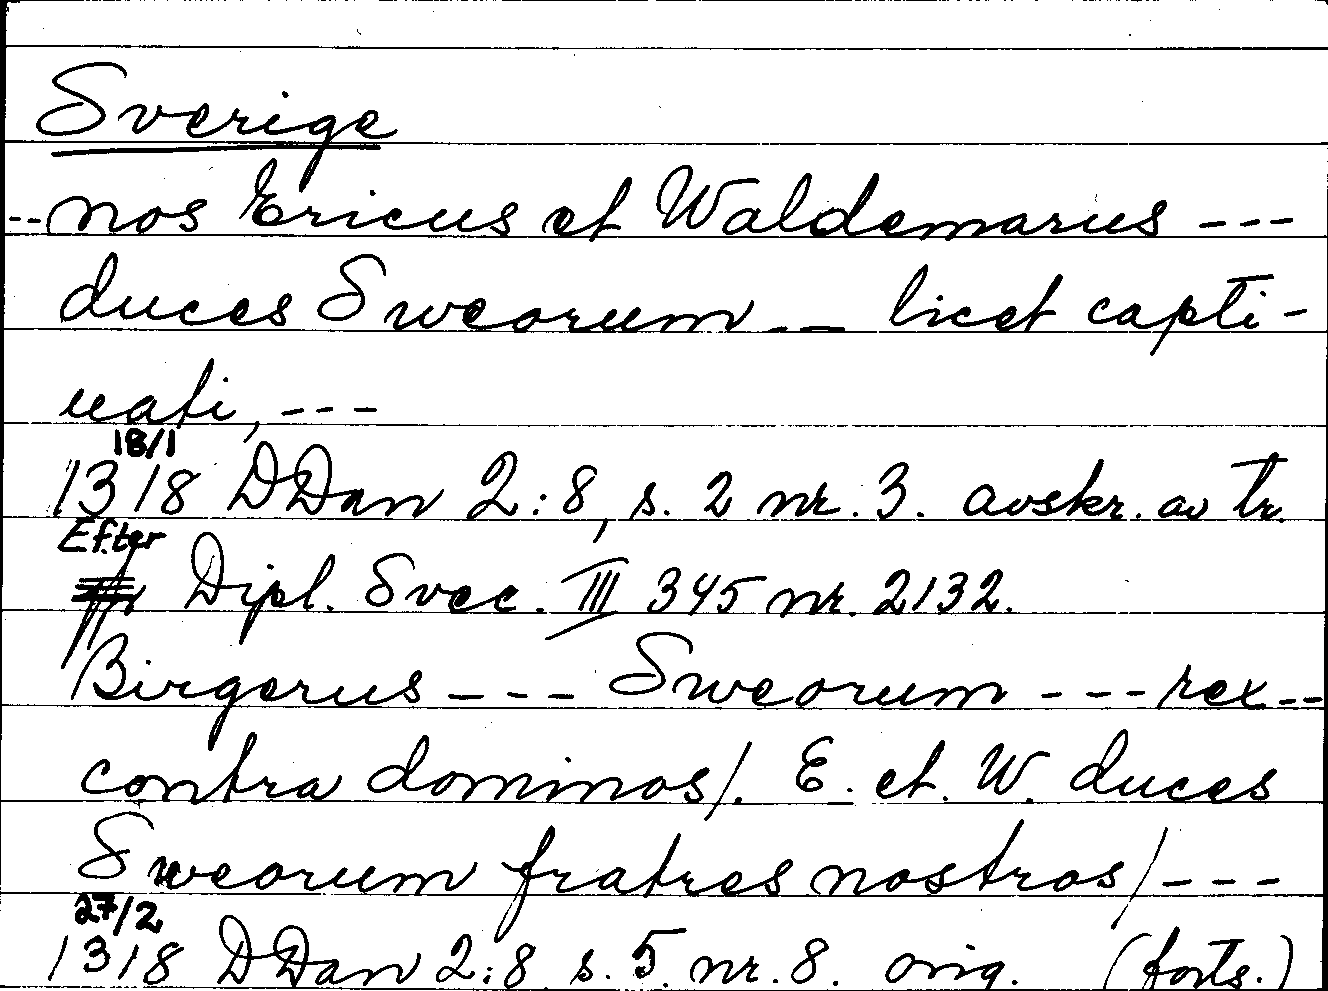 Sverige
--nos Ericus et Waldemarus ---
duces Sweorum -- licet capti-
uati, ---
18/1
1318 DDan 2:8, s. 2 nr. 3. avskr. av tr.
Efter
Dipl. Svec. III 345 nr. 2132.
Birgerus --- Sweorum --- rex --
contra dominos/. E. et. W. duces
Sweorum fratres nostros/---
27/2
1318 DDan 2:8 s. 5 nr. 8. orig. (forts.)